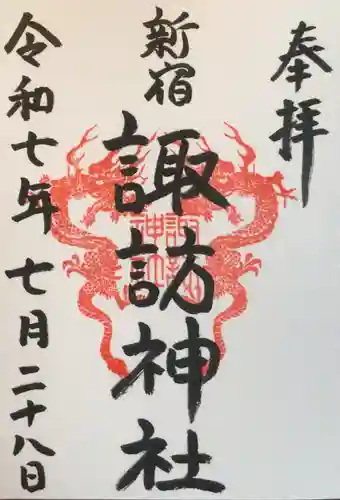 奉拝
新宿
諏訪神社
令和七年 七月二十八日
諏訪神社